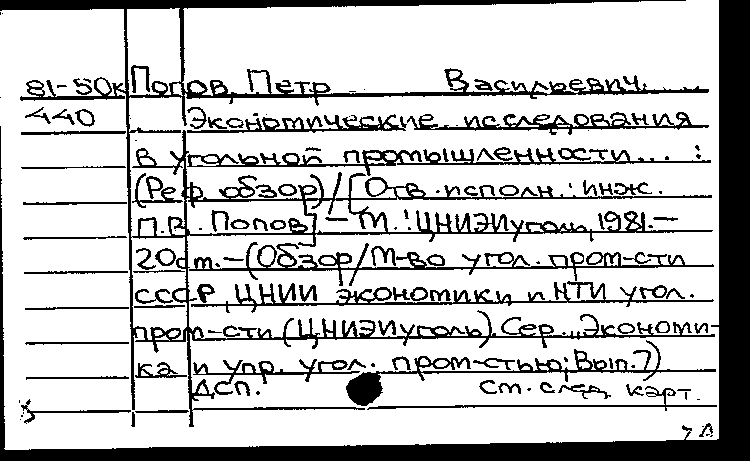 81-50к Попов, Петр Васильевич.
440 Экономические исследования
в угольной промышленности... :
(Реф. обзор) / [Отв. исполн.: инж.
П.В. Попов]. — М.: ЦНИЭИуголь, 1981. —
20 ст. — (Обзор / М-во угол. пром-сти
СССР, ЦНИИ экономики и НТИ угол.
пром-сти (ЦНИЭИуголь). Сер. „Экономи-
ка и упр. угол. пром-стью; Вып. 7)
ДСП. см. след. карт.